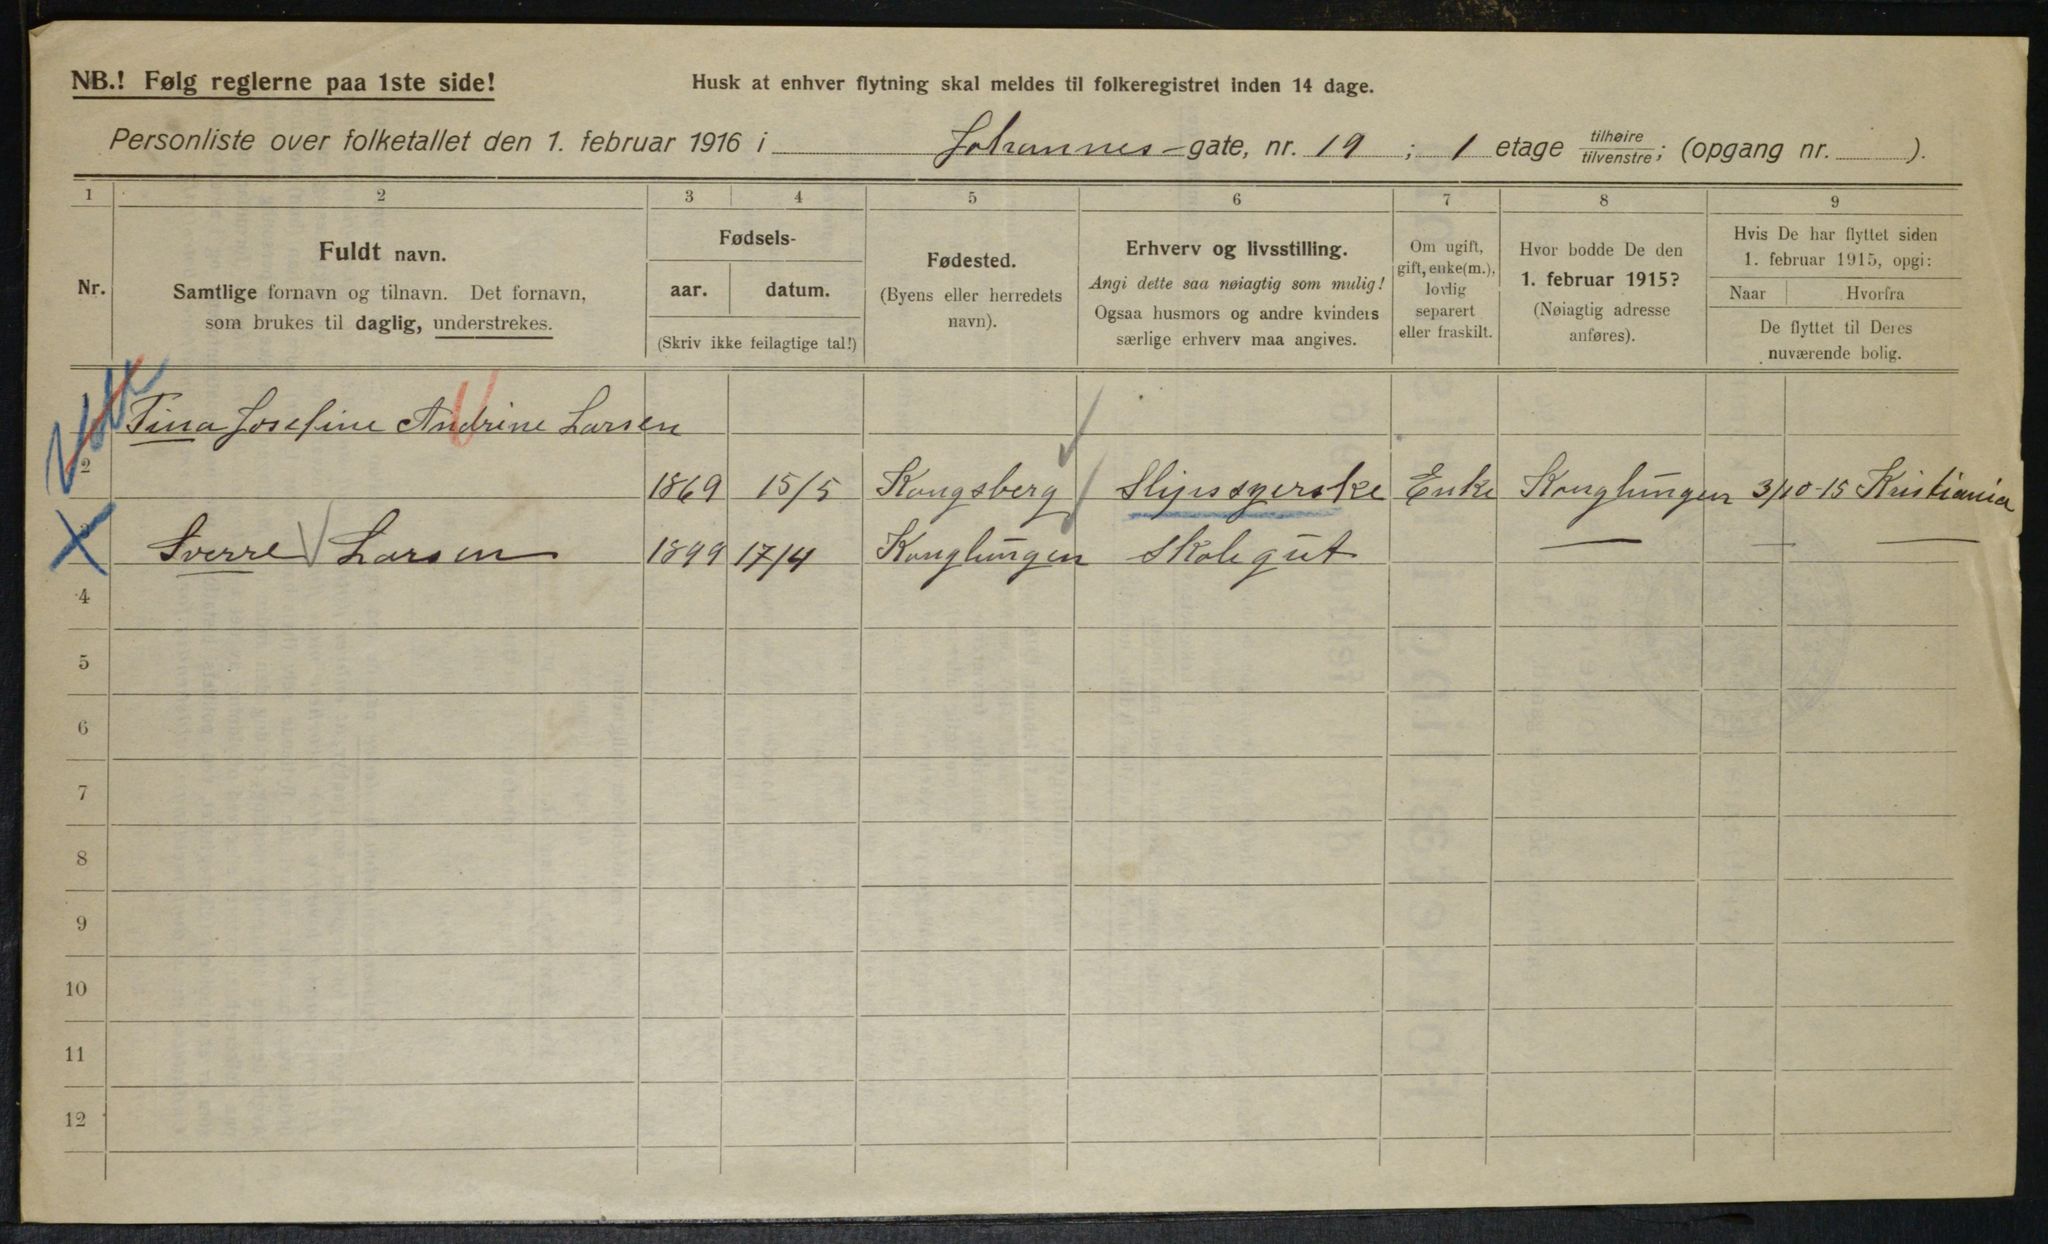 NB.! Følg reglerne paa 1ste side!
Husk at enhver flytning skal meldes til folkeregistret inden 14 dage.
Personliste over folketallet den 1. februar 1916 i Johannes-gate, nr. 19 ; 1 etage tilhøire/tilvenstre; (opgang nr. ).
1 2 3 4 5 6 7 8 9
Nr.
Fuldt navn.
Samtlige fornavn og tilnavn. Det fornavn,
som brukes til daglig, understrekes.
Fødsels-
aar. datum.
(Skriv ikke feilagtige tal!)
Fødested.
(Byens eller herredets
navn).
Erhverv og livsstilling.
Angi dette saa nøiagtig som mulig!
Ogsaa husmors og andre kvinders
særlige erhverv maa angives.
Om ugift,
gift, enke(m.),
lovlig
separert
eller fraskilt.
Hvor bodde De den
1. februar 1915?
(Nøiagtig adresse
anføres).
Hvis De har flyttet siden
1. februar 1915, opgi:
Naar Hvorfra
De flyttet til Deres
nuværende bolig.
Tina Josefine Andrine Larsen
2 1869 15/5 Kongsberg Slipssyerske Enke Konglungen 3/10-15 Kristiania
3 Sverre Larsen 1899 17/4 Konglungen Skolegut — — —
4
5
6
7
8
9
10
11
12